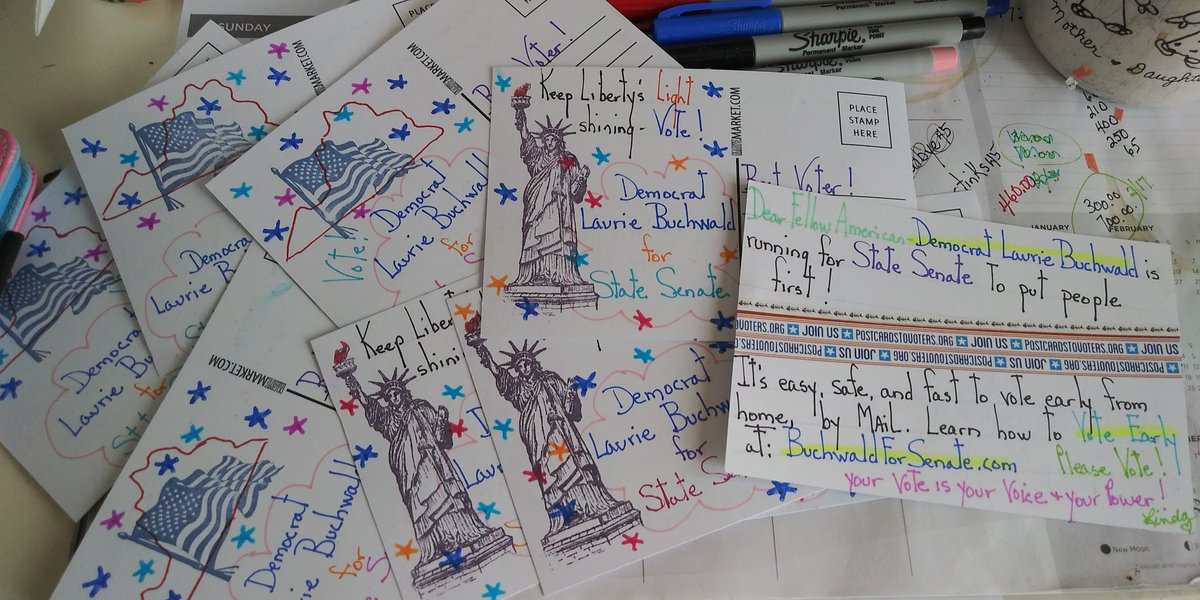 SUNDAY
MARKET.COM
Vote!
Vote!
Democrat
Laurie Buchwald
for
Democrat
Laurie
Democrat
Laurie
for
Democrat
Buchwald
for
Keep Liberty's
shining
Keep Liberty's Light
shining - Vote!
Democrat
Laurie Buchwald
for
State Senate
Democrat
Laurie Buchwald
for
State
MARKET.COM
PLACE
STAMP
HERE
Voter!
Dear Fellow American - Democrat Laurie Buchwald is
running for State Senate to put people
first!
POSTCARDSTOVOTERS.ORG JOIN US POSTCARDSTOVOTERS.ORG JOIN US
POSTCARDSTOVOTERS.ORG JOIN US POSTCARDSTOVOTERS.ORG JOIN US
It's easy, safe, and fast to vote early from
home, by MAiL. Learn how to Vote Early
at: BuchwaldForSenate.com Please Vote!
your Vote is your Voice + your Power!
Linda
Sharpie
Permanent Marker
Sharpie
FINE POINT
Permanent Marker
Mother ♥ Daughter
210
400
250
65
300.00
700.00
3/17
JANUARY
FEBRUARY
New Moon